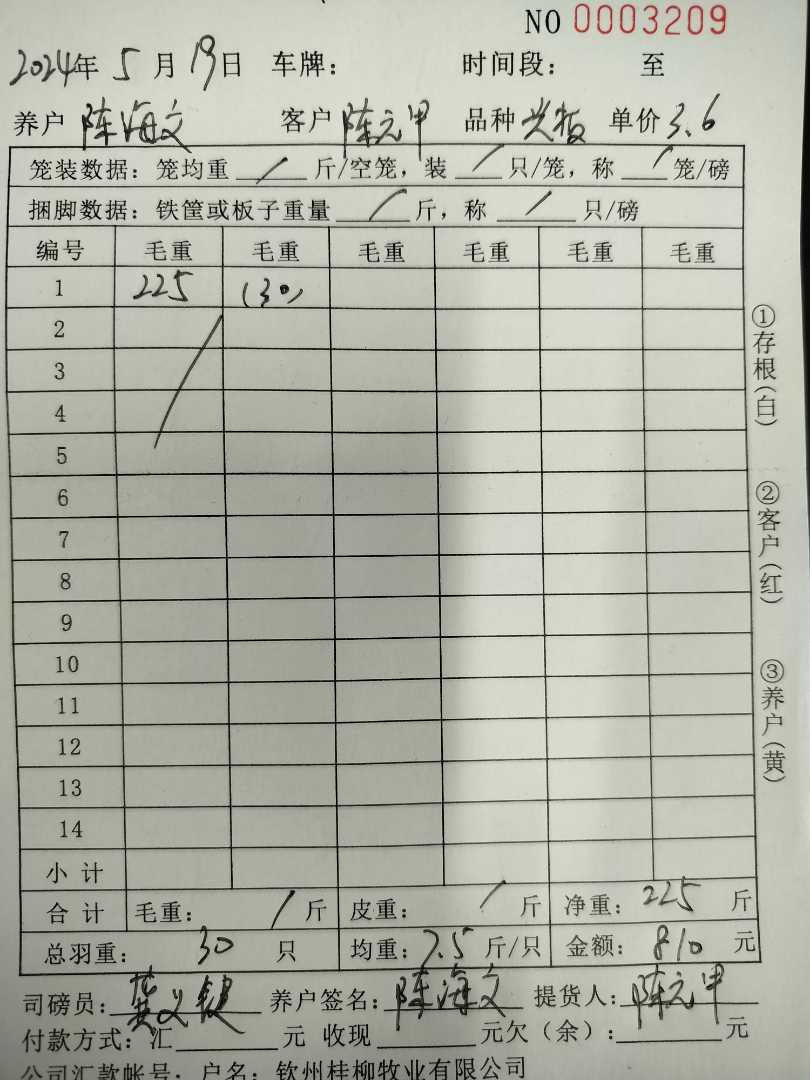 NO 0003209
2024年 5月 19日 车牌: 时间段: 至
养户 陈海文 客户 陈元甲 品种 单价 3.6
笼装数据: 笼均重 / 斤/空笼, 装 / 只/笼, 称 / 笼/磅
捆脚数据: 铁筐或板子重量 / 斤, 称 / 只/磅
编号 毛重 毛重 毛重 毛重 毛重 毛重
1 225 (30)
2
3
4
5
6
7
8
9
10
11
12
13
14
小计
合计 毛重: / 斤 皮重: / 斤 净重: 225 斤
总羽重: 30 只 均重: 7.5 斤/只 金额: 810 元
司磅员: 养户签名: 陈海文 提货人: 陈元甲
付款方式: 汇 元 收现 元欠(余): 元
公司汇款帐号: 户名: 钦州桂柳牧业有限公司
①存根(白)
②客户(红)
③养户(黄)